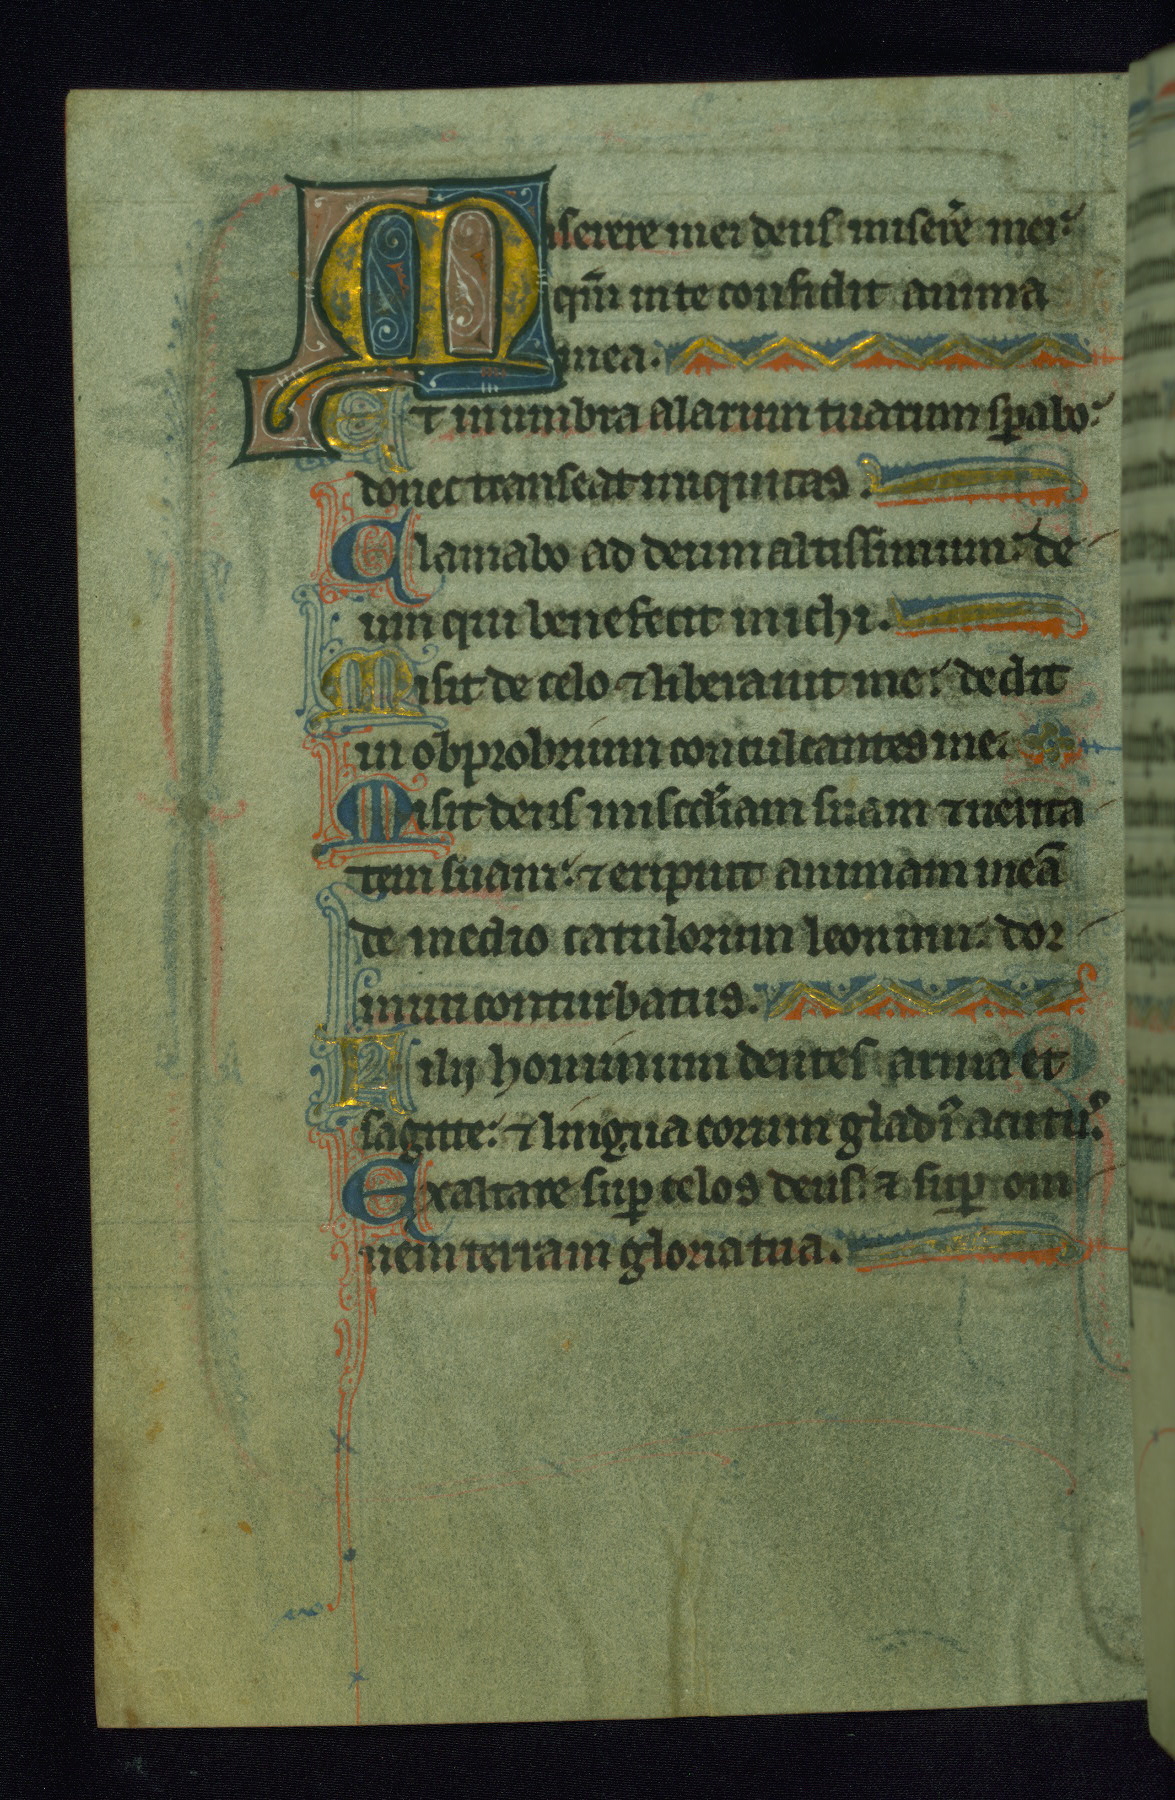 Miserere mei deus miser̄e mei:
qm̄ in te confidit anima
mea.
Et in umbra alarum tuarum sꝑabo:
donec transeat iniquitas.
Clamabo ad deum altissimum: de
um qui bene fecit michi.
Misit de celo ⁊ liberauit me: dedit
in obprobrium conculcantes me.
Misit deus misc̄diam suam ⁊ uerita
tem suam: ⁊ eripuit animam meā
de medio catulorum leonum: dor
miui conturbatus.
Filij hominum dentes arma et
sagitte: ⁊ lingua eorum gladi᷒ acutu᷒.
Exaltare suꝑ celos deus: ⁊ suꝑ om
nem terram gloria tua.